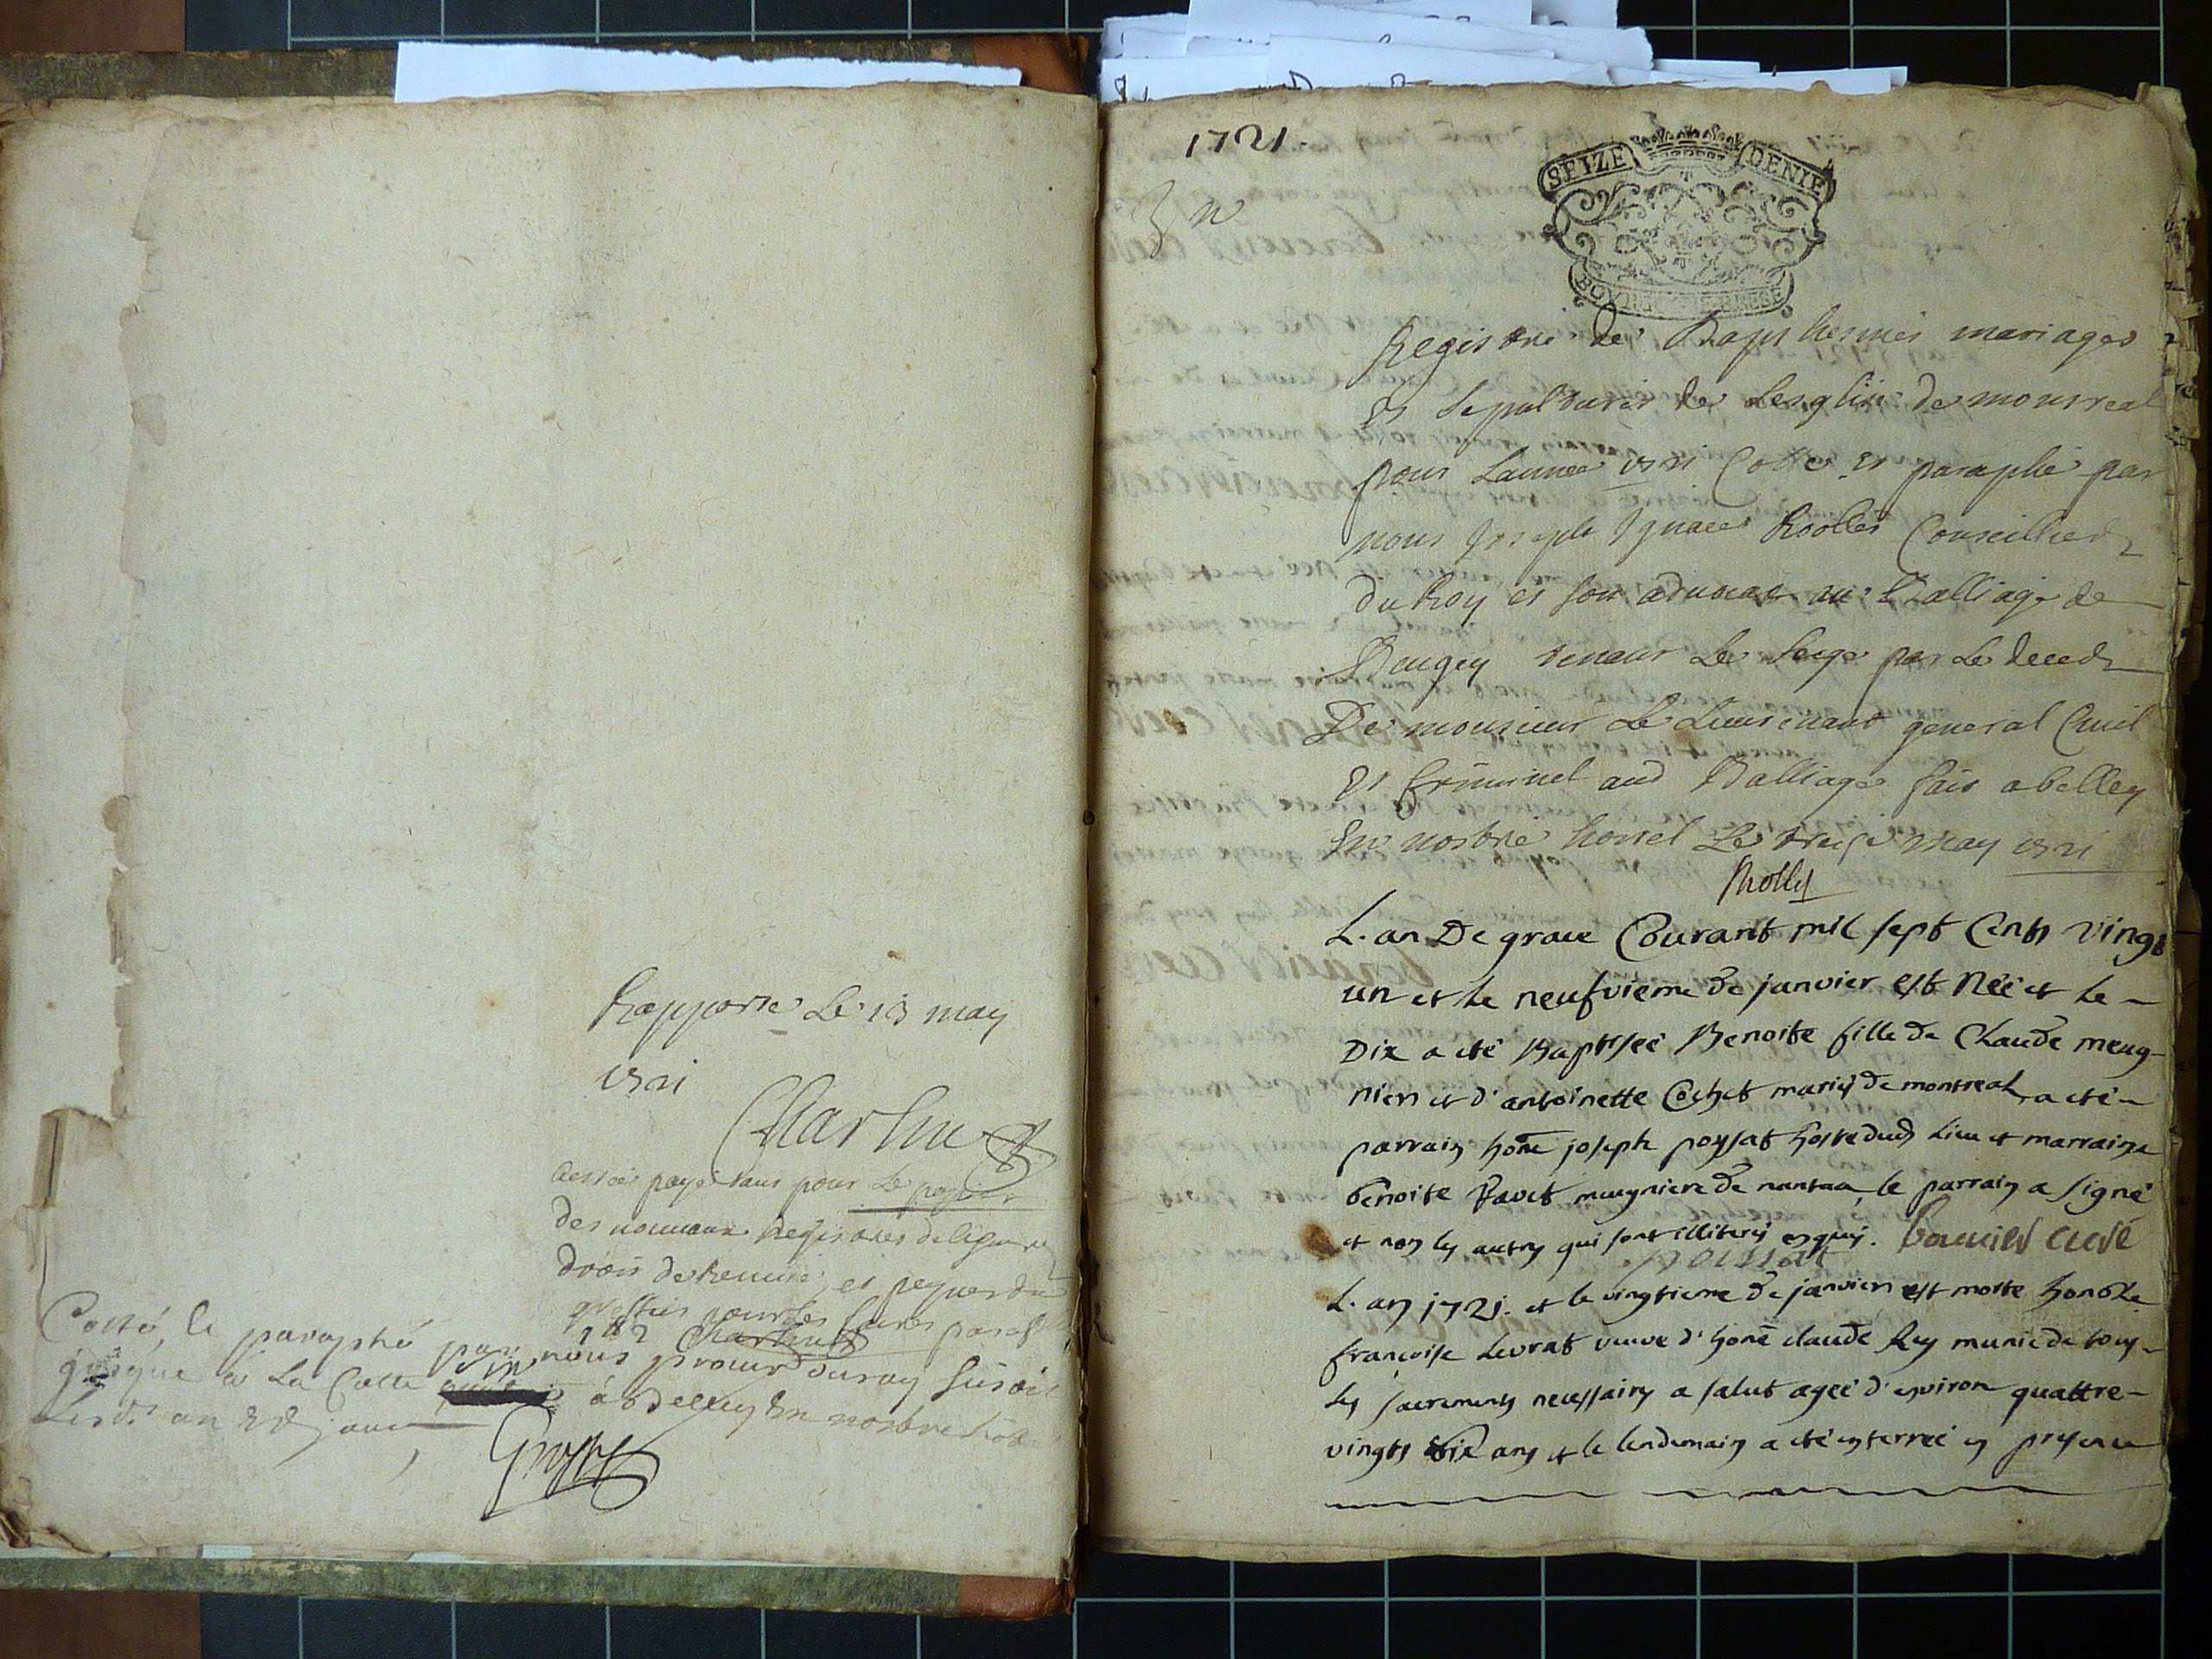 Rapporté Le 13 may
1721
Charlin
des nouveaux Registres
droit de Remise et
Cotté, le paraphé par nous procur du roy
a La Cotte a Belley En nostre
1721.
SEIZE DENIE
BOVRG BRESSE
Registre de Bapthesmes mariages
Et Sepultures de Lesglise de montreal
pour Lannee 1721 Cotté Et paraphé par
nous Joseph Ignace Rolles Conseiller
du Roy et son advocat au Balliage de
Beugey tenant Le Siege par Le deced
De monsieur Le Lieutenant general Civil
Et Criminel aud Balliage fait a belley
En nostre hostel Le treise may 1721
Rolly
L'an De grace Courant mil sept Cents vingt
un et le neufvieme de janvier est Néé et le
Dix a eté Baptiséé Benoite fille de Claude meug-
nier et d'antoinette Cochet mariés de montreal a eté
parrain hone joseph poysat hoste dud Lieu et marraine
benoite Ravet meugniere de nantua le parrain a signé
et non les autres qui sont illiterés enquis. curé
poissat
L'an 1721. et le vingtieme de janvier est morte honoble
françoise Levrat veuve d'hone claude Rey munie de tous
les sacrements necessaires a salut ageé d'environ quattre-
vingts dix ans et le lendemain a eté enterreé en presence